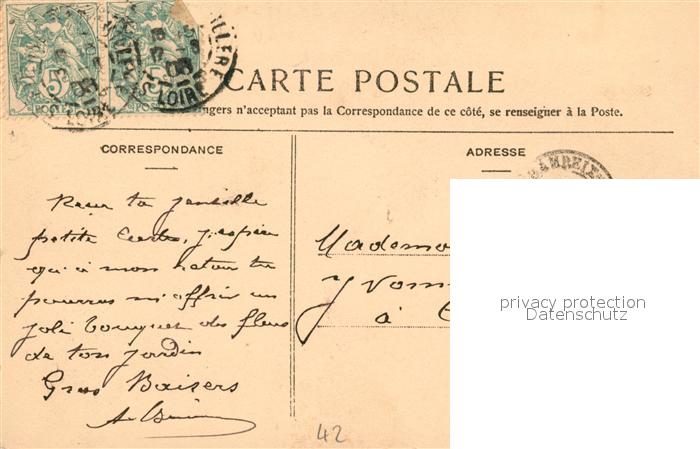 CARTE POSTALE
ngers n'acceptant pas la Correspondance de ce côté, se renseigner à la Poste.
CORRESPONDANCE
ADRESSE
Reçu ta gentille
petite Carte, j'espère
qu'à mon retour tu
pourras m'offrir un
joli bouquet des fleurs
de ton jardin
Gros Baisers
Mademo
Yvonn
à
privacy protection
Datenschutz
42
5
LOIRE